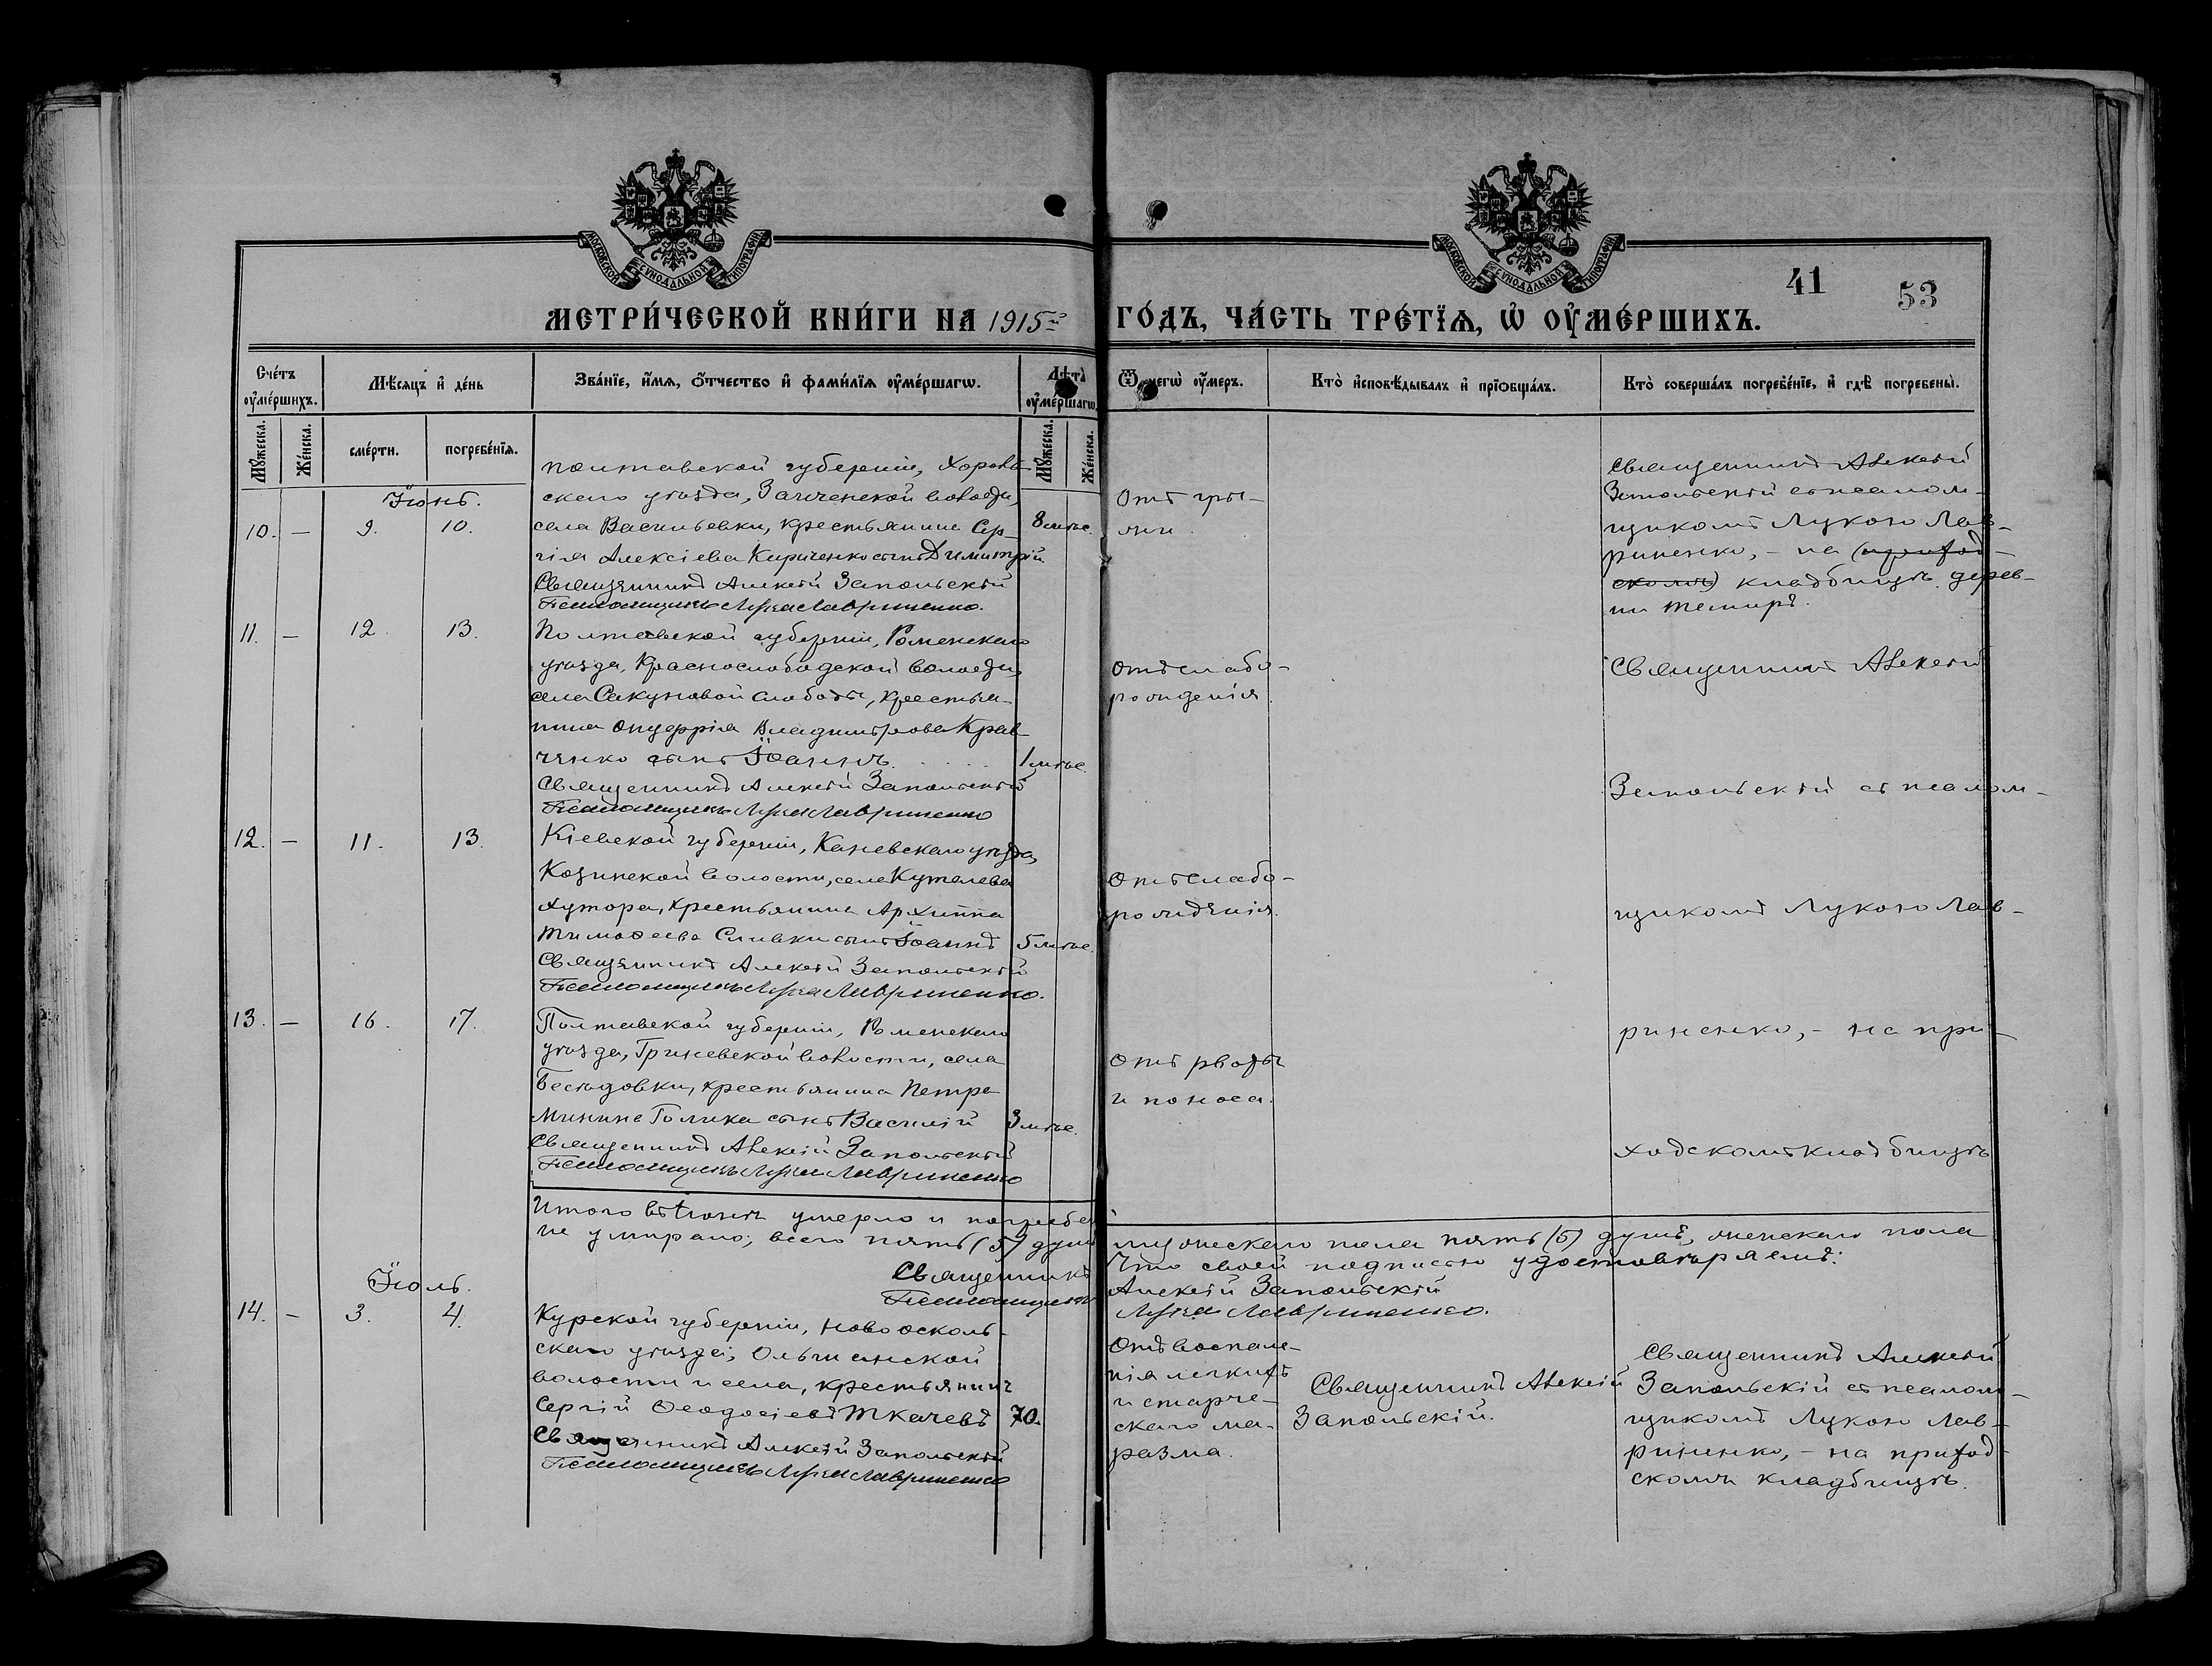 МОСКОВСКОЙ СУНОДАЛЬНОЙ ТИПОГРАФІИ
МОСКОВСКОЙ СУНОДАЛЬНОЙ ТИПОГРАФІИ
41
53
МЕТРИ́ЧЕСКОЙ КНИ́ГИ НА 1915 ГО́ДЪ, ЧА́СТЬ ТРЕ́ТЇѦ, Ѡ҆ ОУ҆МЕ́РШИХЪ.
Сче́тъ оу҆ме́ршихъ.
Мѣ́сяцъ и҆ де́нь
Зва́нїе, и҆́мѧ, ѻ҆́тчество и҆ фами́лїѧ оу҆ме́ршагѡ.
Лѣта̀ оу҆ме́ршагѡ.
Ѿ чегѡ̀ оу҆́меръ.
Кто̀ и҆сповѣ́дывалъ и҆ прїѡбща́лъ.
Кто̀ соверша́лъ погребе́нїе, и҆ гдѣ̀ погребены̀.
Мꙋ́жеска.
Же́нска.
сме́рти.
погребе́нїѧ.
Мꙋ́жеска.
Же́нска.
Іюнь.
10. — 9. 10.
Полтавской губерніи, Хороль-
скаго уѣзда, волости,
села Васильевки, крестьянина Сер-
гія Алексіева Кириченко сынъ Димитрій.
8 мѣс.
Священникъ Алексій Запольскій
Псаломщикъ Лука Лавриненко.
Отъ гры-
жи.
Священникъ Алексій
Запольскій съ псалом-
щикомъ Лукою Лав-
риненко, - на (приход-
скомъ) кладбищѣ дерев-
ни Темиръ.
11. — 12. 13.
Полтавской губерніи, Роменскаго
уѣзда, Краснослободской волости,
села Сакуновой Слободы, крестья-
нина Онуфрія Владимірова Крав-
ченко сынъ Іоаннъ. . . . . 1 мѣс.
Священникъ Алексій Запольскій
Псаломщикъ Лука Лавриненко
Отъ слабо-
рожденія.
Священникъ Алексій
Запольскій съ псалом-
12. — 11. 13.
Кіевской губерніи, Каневскаго уѣзда,
Козинской волости, села Кутелева
хутора, крестьянина Архиппа
Тимоѳеева Сливки сынъ Іоаннъ 5 мѣс.
Священникъ Алексій Запольскій
Псаломщикъ Лука Лавриненко.
Отъ слабо-
рожденія.
щикомъ Лукою Лав-
13. — 16. 17.
Полтавской губерніи, Роменскаго
уѣзда, Гриневской волости, села
Бесѣдовки, крестьянина Петра
Минина Голика сынъ Василій 3 мѣс.
Священникъ Алексій Запольскій
Псаломщикъ Лука Лавриненко
Отъ рвоты
и поноса.
риненко, - на при-
ходскомъ кладбищѣ
Итого въ Іюнѣ умерло и погребено мужескаго пола пять (5) душъ, женскаго пола
не умирало; всего пять (5) душъ Что своей подписью удостовѣряемъ:
Священникъ Алексій Запольскій
Псаломщикъ Лука Лавриненко.
Іюль.
14. — 3. 4.
Курской губерніи, Новоосколь-
скаго уѣзда, Ольшанской
волости и села, крестьянинъ
Сергій Ѳеодосіевъ Ткачевъ 70.
Священникъ Алексій Запольскій
Псаломщикъ Лука Лавриненко
Отъ воспале-
нія легкихъ
и старче-
скаго ма-
разма.
Священникъ Алексій
Запольскій.
Священникъ Алексій
Запольскій съ псалом-
щикомъ Лукою Лав-
риненко, - на приход-
скомъ кладбищѣ.